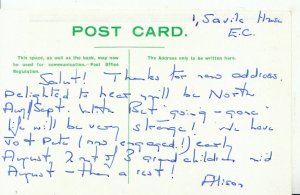 1, Savile House
E.C.
POST CARD.
This space, as well as the back, may now
be used for communication.—Post Office
Regulation.
The Address only to be written here.
Salut! Thanks for new address.
Delighted to hear you'll be North
Aug/Sept. With Bet "going - gone"
life will be very strange! We have
Jo + Pete (now engaged!) early
August, 2 out of 3 grandchildren mid
August - then a rest!
Alison